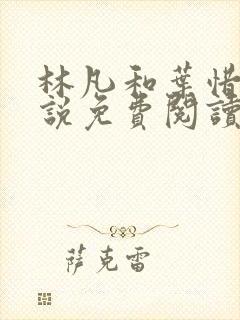 林凡和葉惜
說免費閱讀
薩克雷